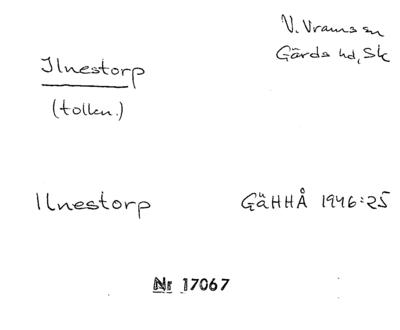 V. Vrams sn
Gärds hd, Sk
Ilnestorp
(tolkn.)
Ilnestorp GäHHÅ 1946:25
Nr 17067